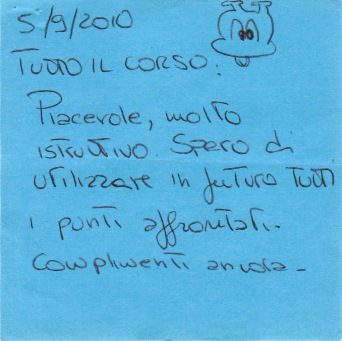 5/9/2010
TUTTO IL CORSO:
Piacevole, molto
istruttivo. Spero di
utilizzare in futuro tutti
i punti affrontati.
Complimenti ancora.